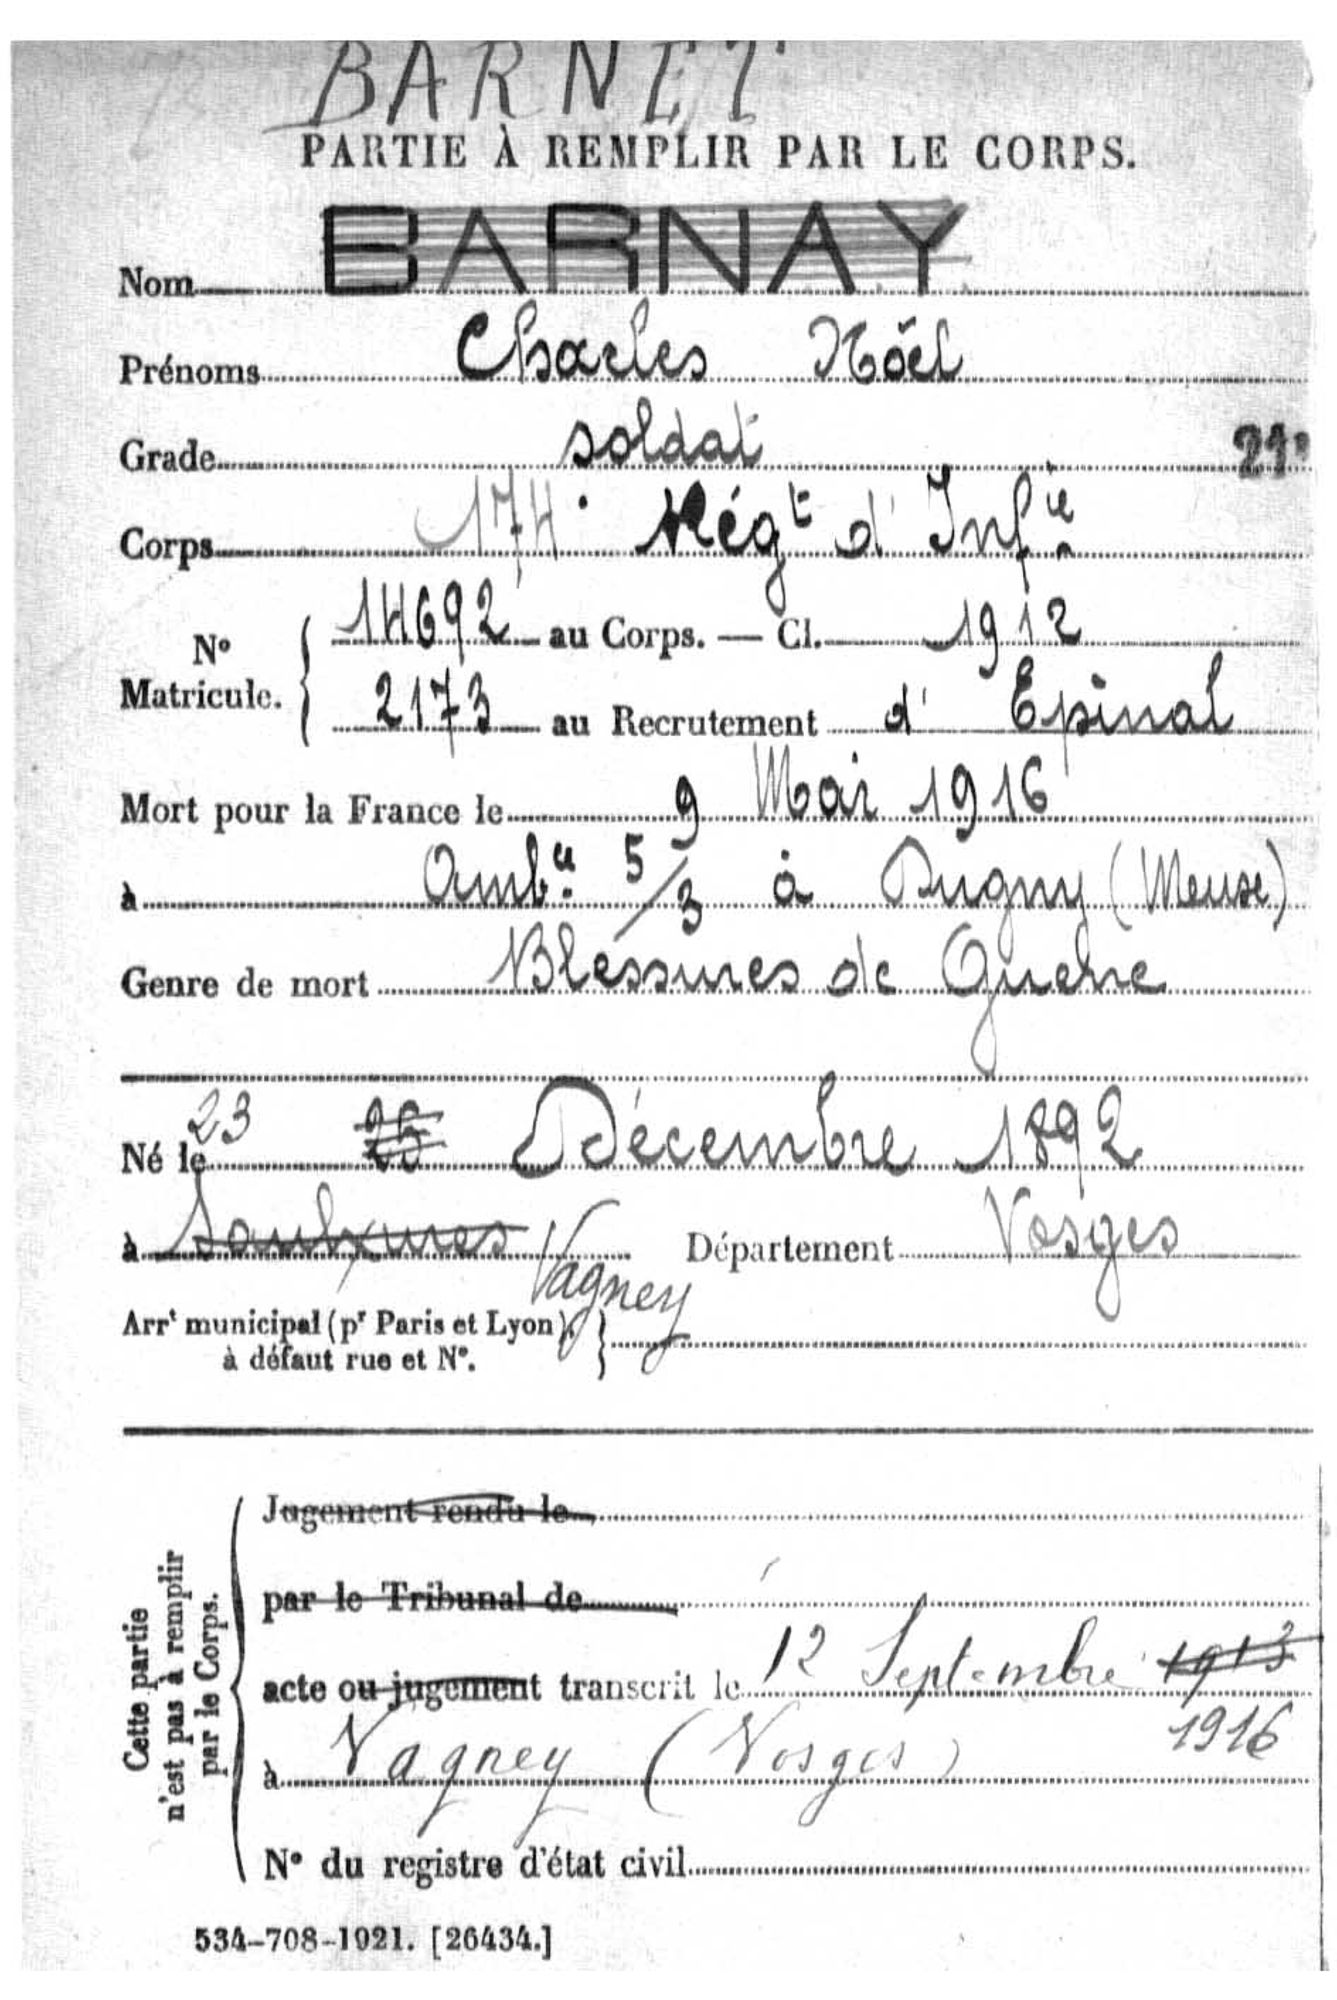 BARNET
PARTIE À REMPLIR PAR LE CORPS.
Nom BARNAY
Prénoms Charles Nöel
Grade soldat 21e
Corps 174e Régt d'Infie
No Matricule. { 14692 au Corps. — Cl. 1912
2173 au Recrutement d'Epinal
Mort pour la France le 9 Mai 1916
à Ambce 5/3 à Dugny (Meuse)
Genre de mort Blessures de Guerre
Né le 23 Décembre 1892
à Saulxures Vagney Département Vosges
Arrt municipal (pr Paris et Lyon), }
à défaut rue et No.
Cette partie
n'est pas à remplir
par le Corps.
Jugement rendu le
par le Tribunal de
acte ou jugement transcrit le 12 Septembre 1913
1916
à Vagney (Vosges)
No du registre d'état civil
534-708-1921. [26434.]